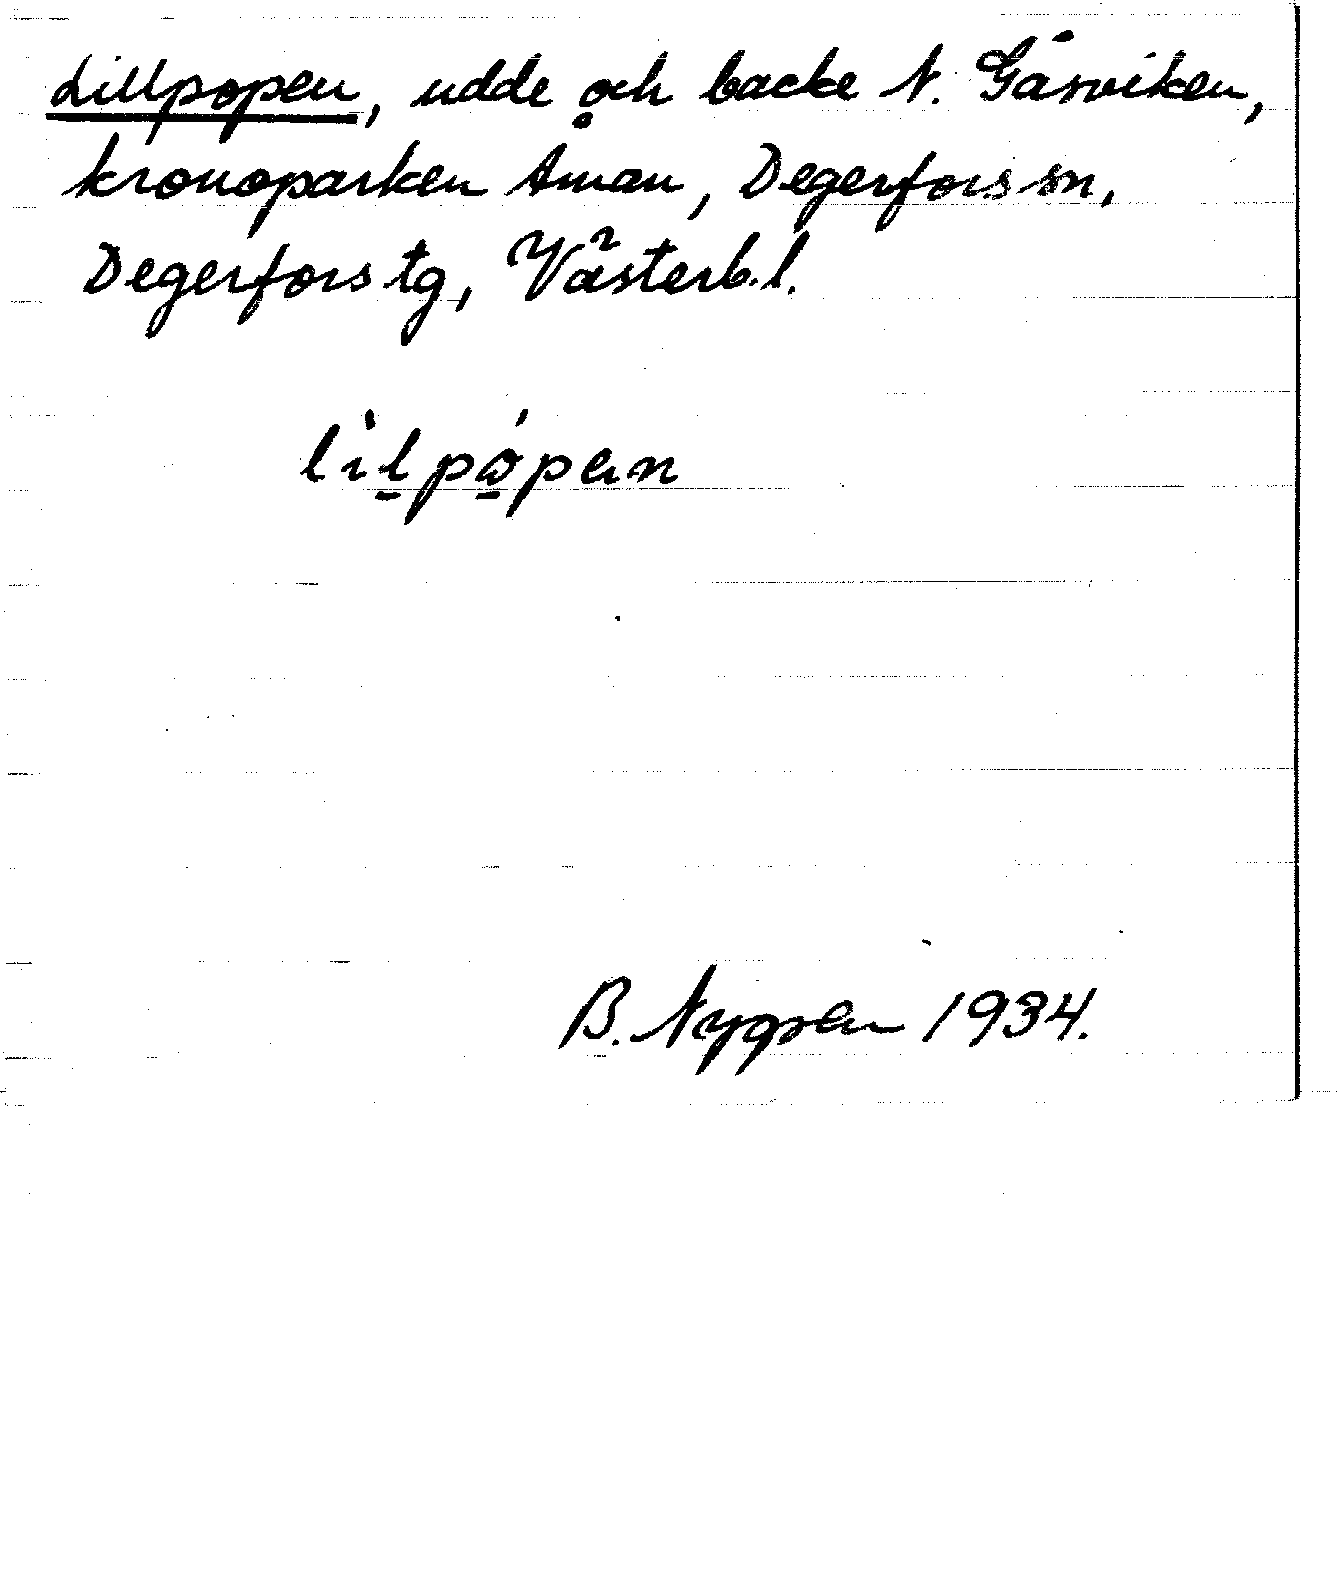 Lillpopen, udde och backe N. Gåsviken,
kronoparken Åman, Degerfors sn,
Degerfors tg, Västerb. l.
lìlpópen
B. Nygren 1934.